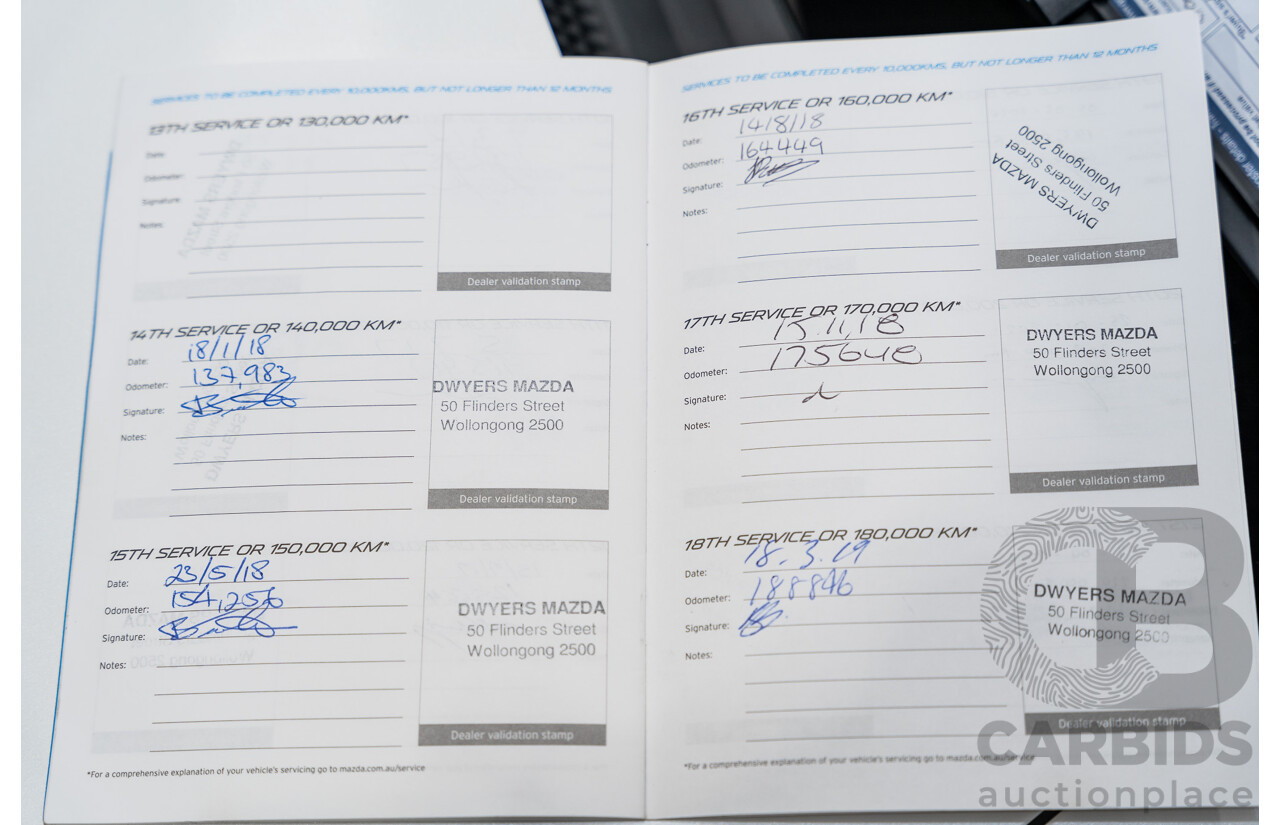 SERVICES TO BE COMPLETED EVERY 10,000KMS, BUT NOT LONGER THAN 12 MONTHS
13TH SERVICE OR 130,000 KM*
Date:
Odometer:
Signature:
Notes:
Dealer validation stamp
14TH SERVICE OR 140,000 KM*
Date: 18/1/18
Odometer: 137,983
Signature:
Notes:
DWYERS MAZDA
50 Flinders Street
Wollongong 2500
Dealer validation stamp
15TH SERVICE OR 150,000 KM*
Date: 23/5/18
Odometer: 154,256
Signature:
Notes:
DWYERS MAZDA
50 Flinders Street
Wollongong 2500
Dealer validation stamp
*For a comprehensive explanation of your vehicle's servicing go to mazda.com.au/service
SERVICES TO BE COMPLETED EVERY 10,000KMS, BUT NOT LONGER THAN 12 MONTHS
16TH SERVICE OR 160,000 KM*
Date: 14/8/18
Odometer: 164449
Signature:
Notes:
DWYERS MAZDA
50 Flinders Street
Wollongong 2500
Dealer validation stamp
17TH SERVICE OR 170,000 KM*
Date: 15.11.18
Odometer: 175640
Signature:
Notes:
DWYERS MAZDA
50 Flinders Street
Wollongong 2500
Dealer validation stamp
18TH SERVICE OR 180,000 KM*
Date: 18.3.19
Odometer: 188846
Signature:
Notes:
DWYERS MAZDA
50 Flinders Street
Wollongong 2500
Dealer validation stamp
*For a comprehensive explanation of your vehicle's servicing go to mazda.com.au/service
CB
CARBIDS
auctionplace